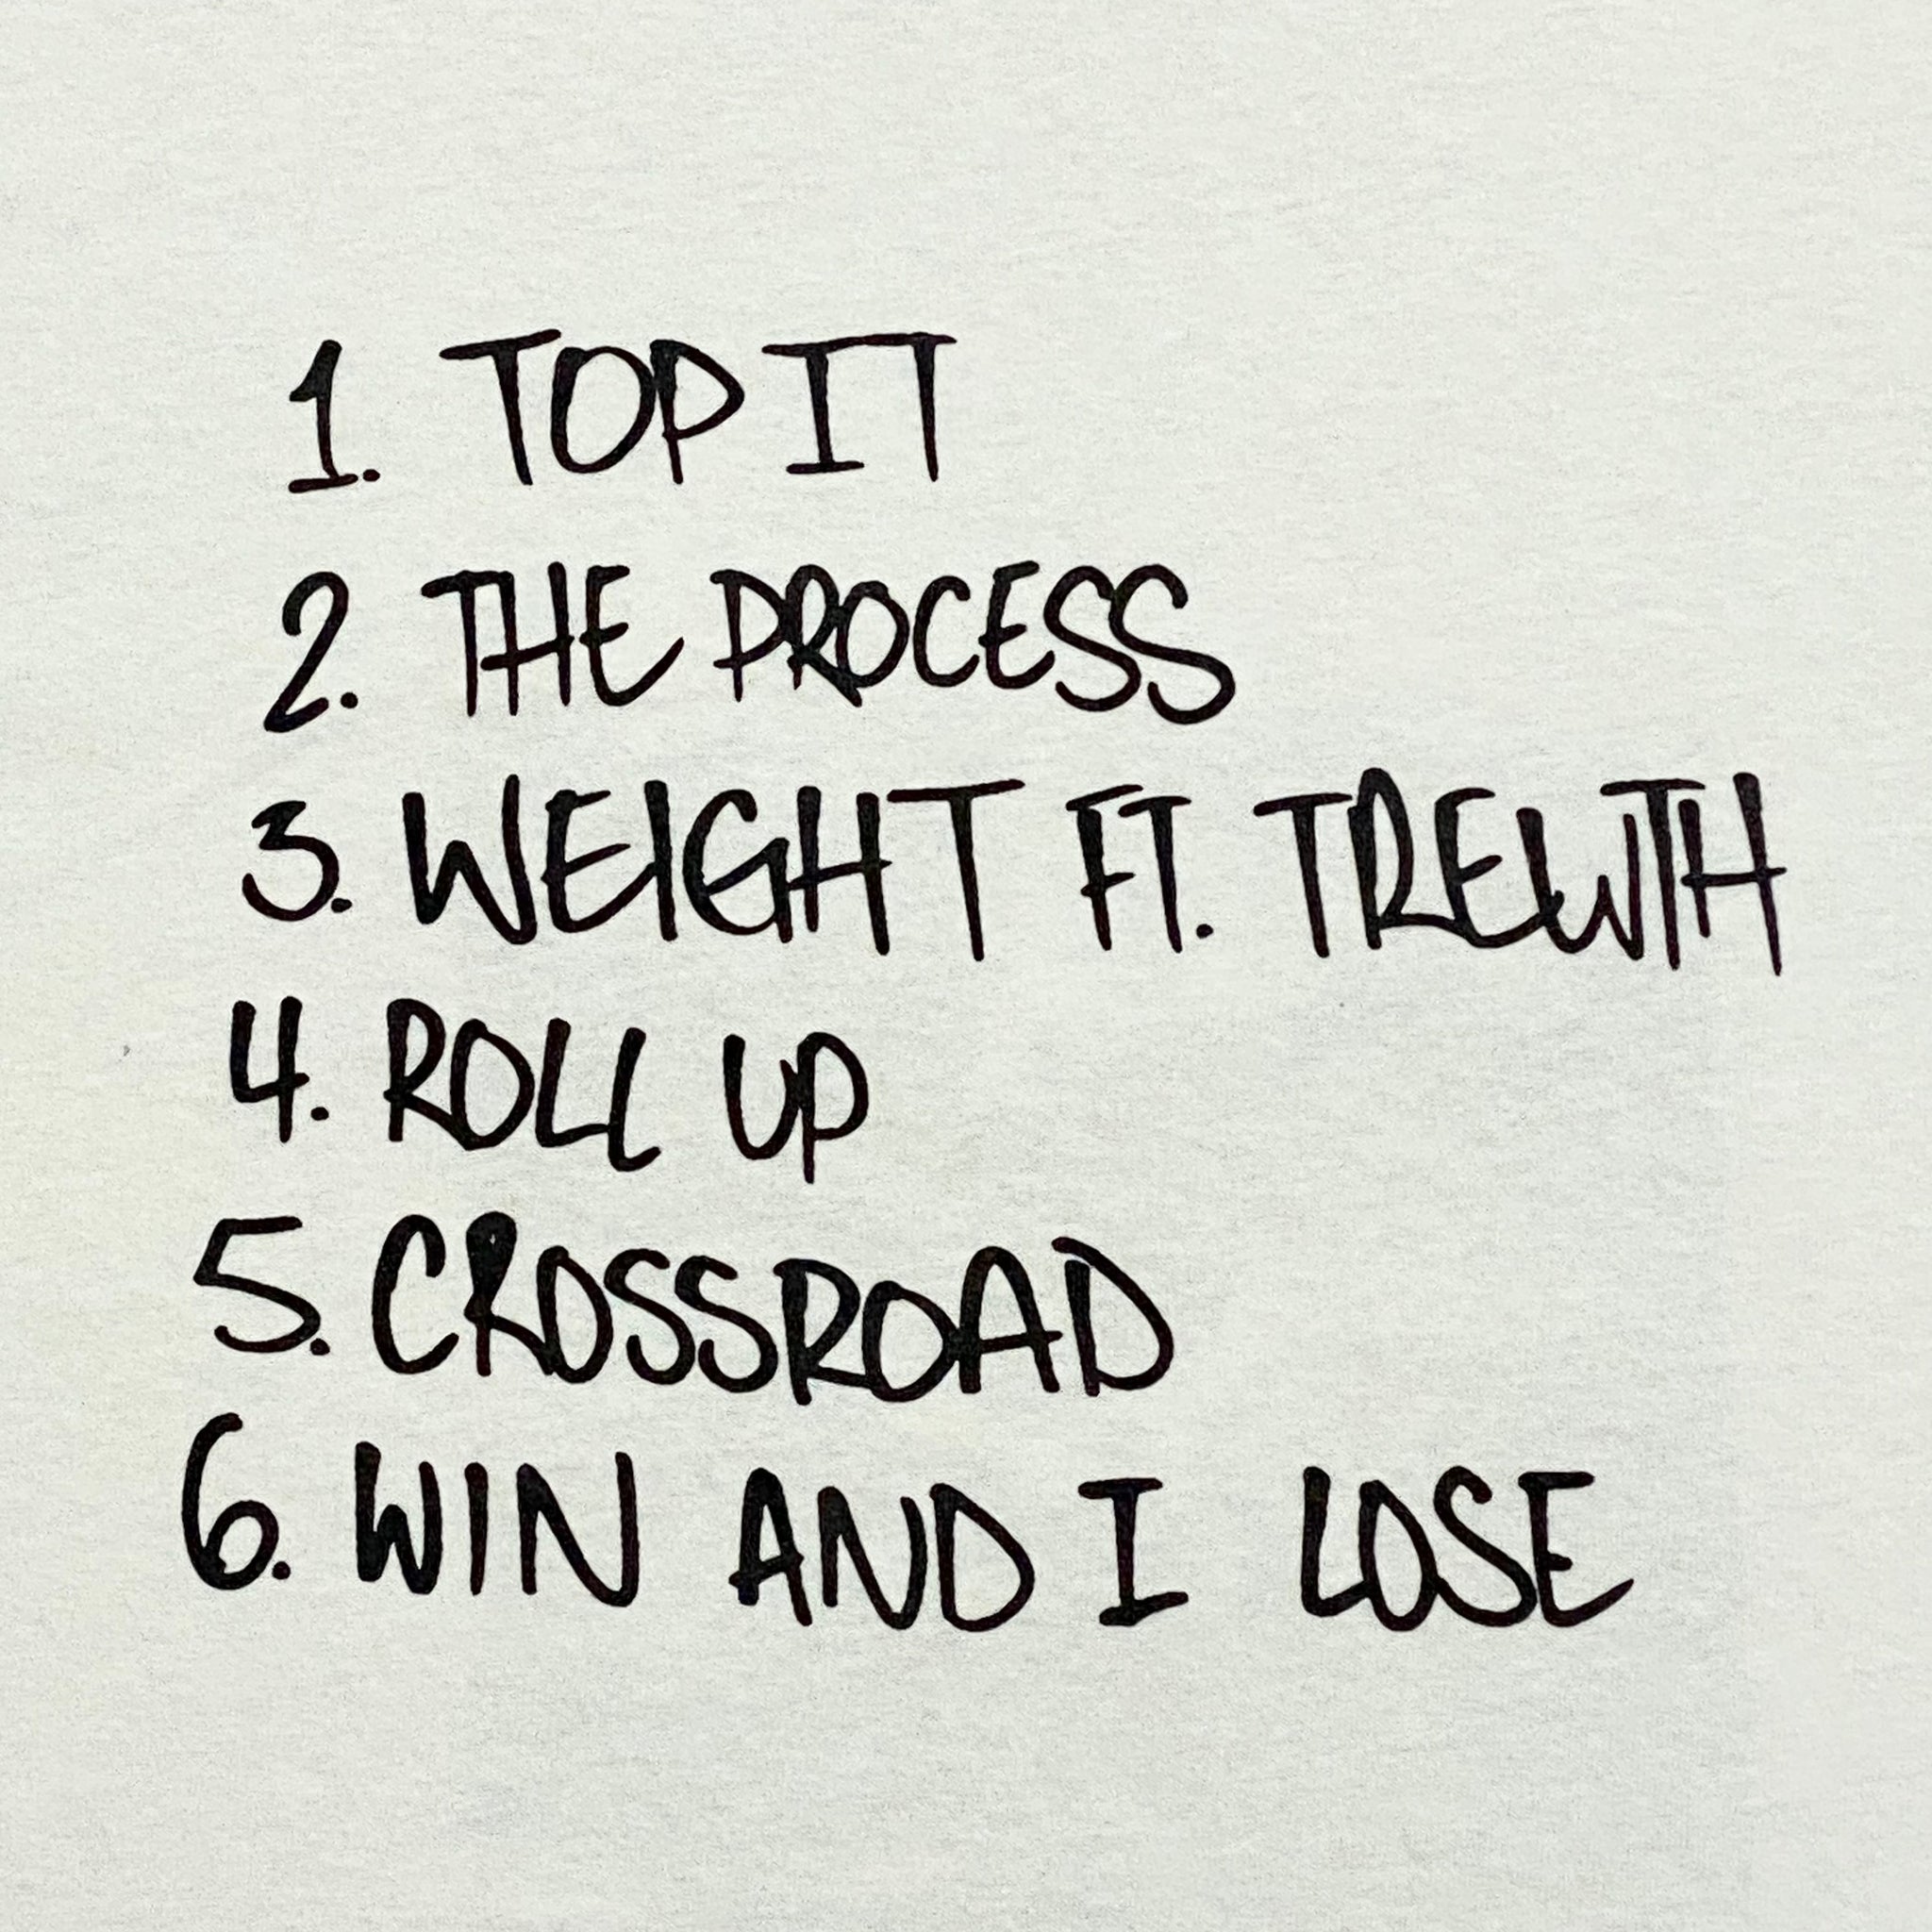 1. TOP IT
2. THE PROCESS
3. WEIGHT FT. TREWTH
4. ROLL UP
5. CROSSROAD
6. WIN AND I LOSE